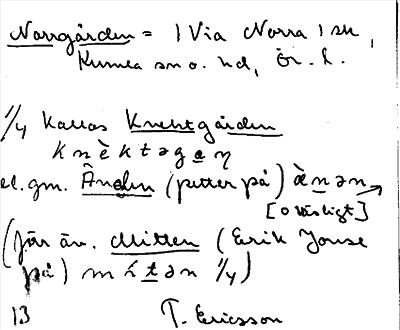 Norrgården = 1 Via Norra 1 sk,
Kumla sn o. hd, Ör. l.
1/4 kallas Knektgården
knὲktəgaη
el. gm. Änden (petter på) ænən
[ovanligt]
(Jär äv. Mitten (Erik Jonse
på) mítən 1/4)
13 T. Ericsson